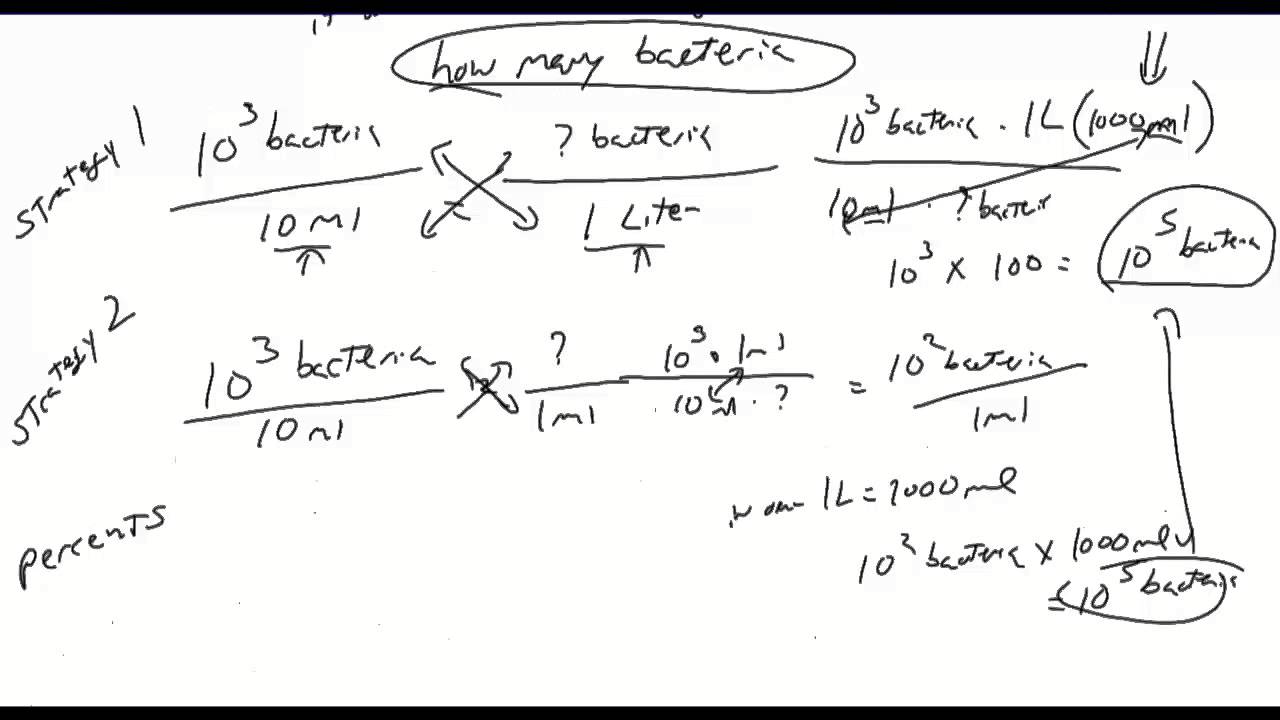 how many bacteria
Strategy 1
10^3 bacteria / 10 ml
? bacteria / 1 Liter
10^3 bacteria · 1L (1000 ml) / 10 ml · ? bacteria
10^3 x 100 = 10^5 bacteria
Strategy 2
10^3 bacteria / 10 ml
? / 1 ml
10^3 · 1 ml / 10 ml · ? = 10^2 bacteria / 1 ml
1L = 1000 ml
10^2 bacteria x 1000 ml
= 10^5 bacteria
percents